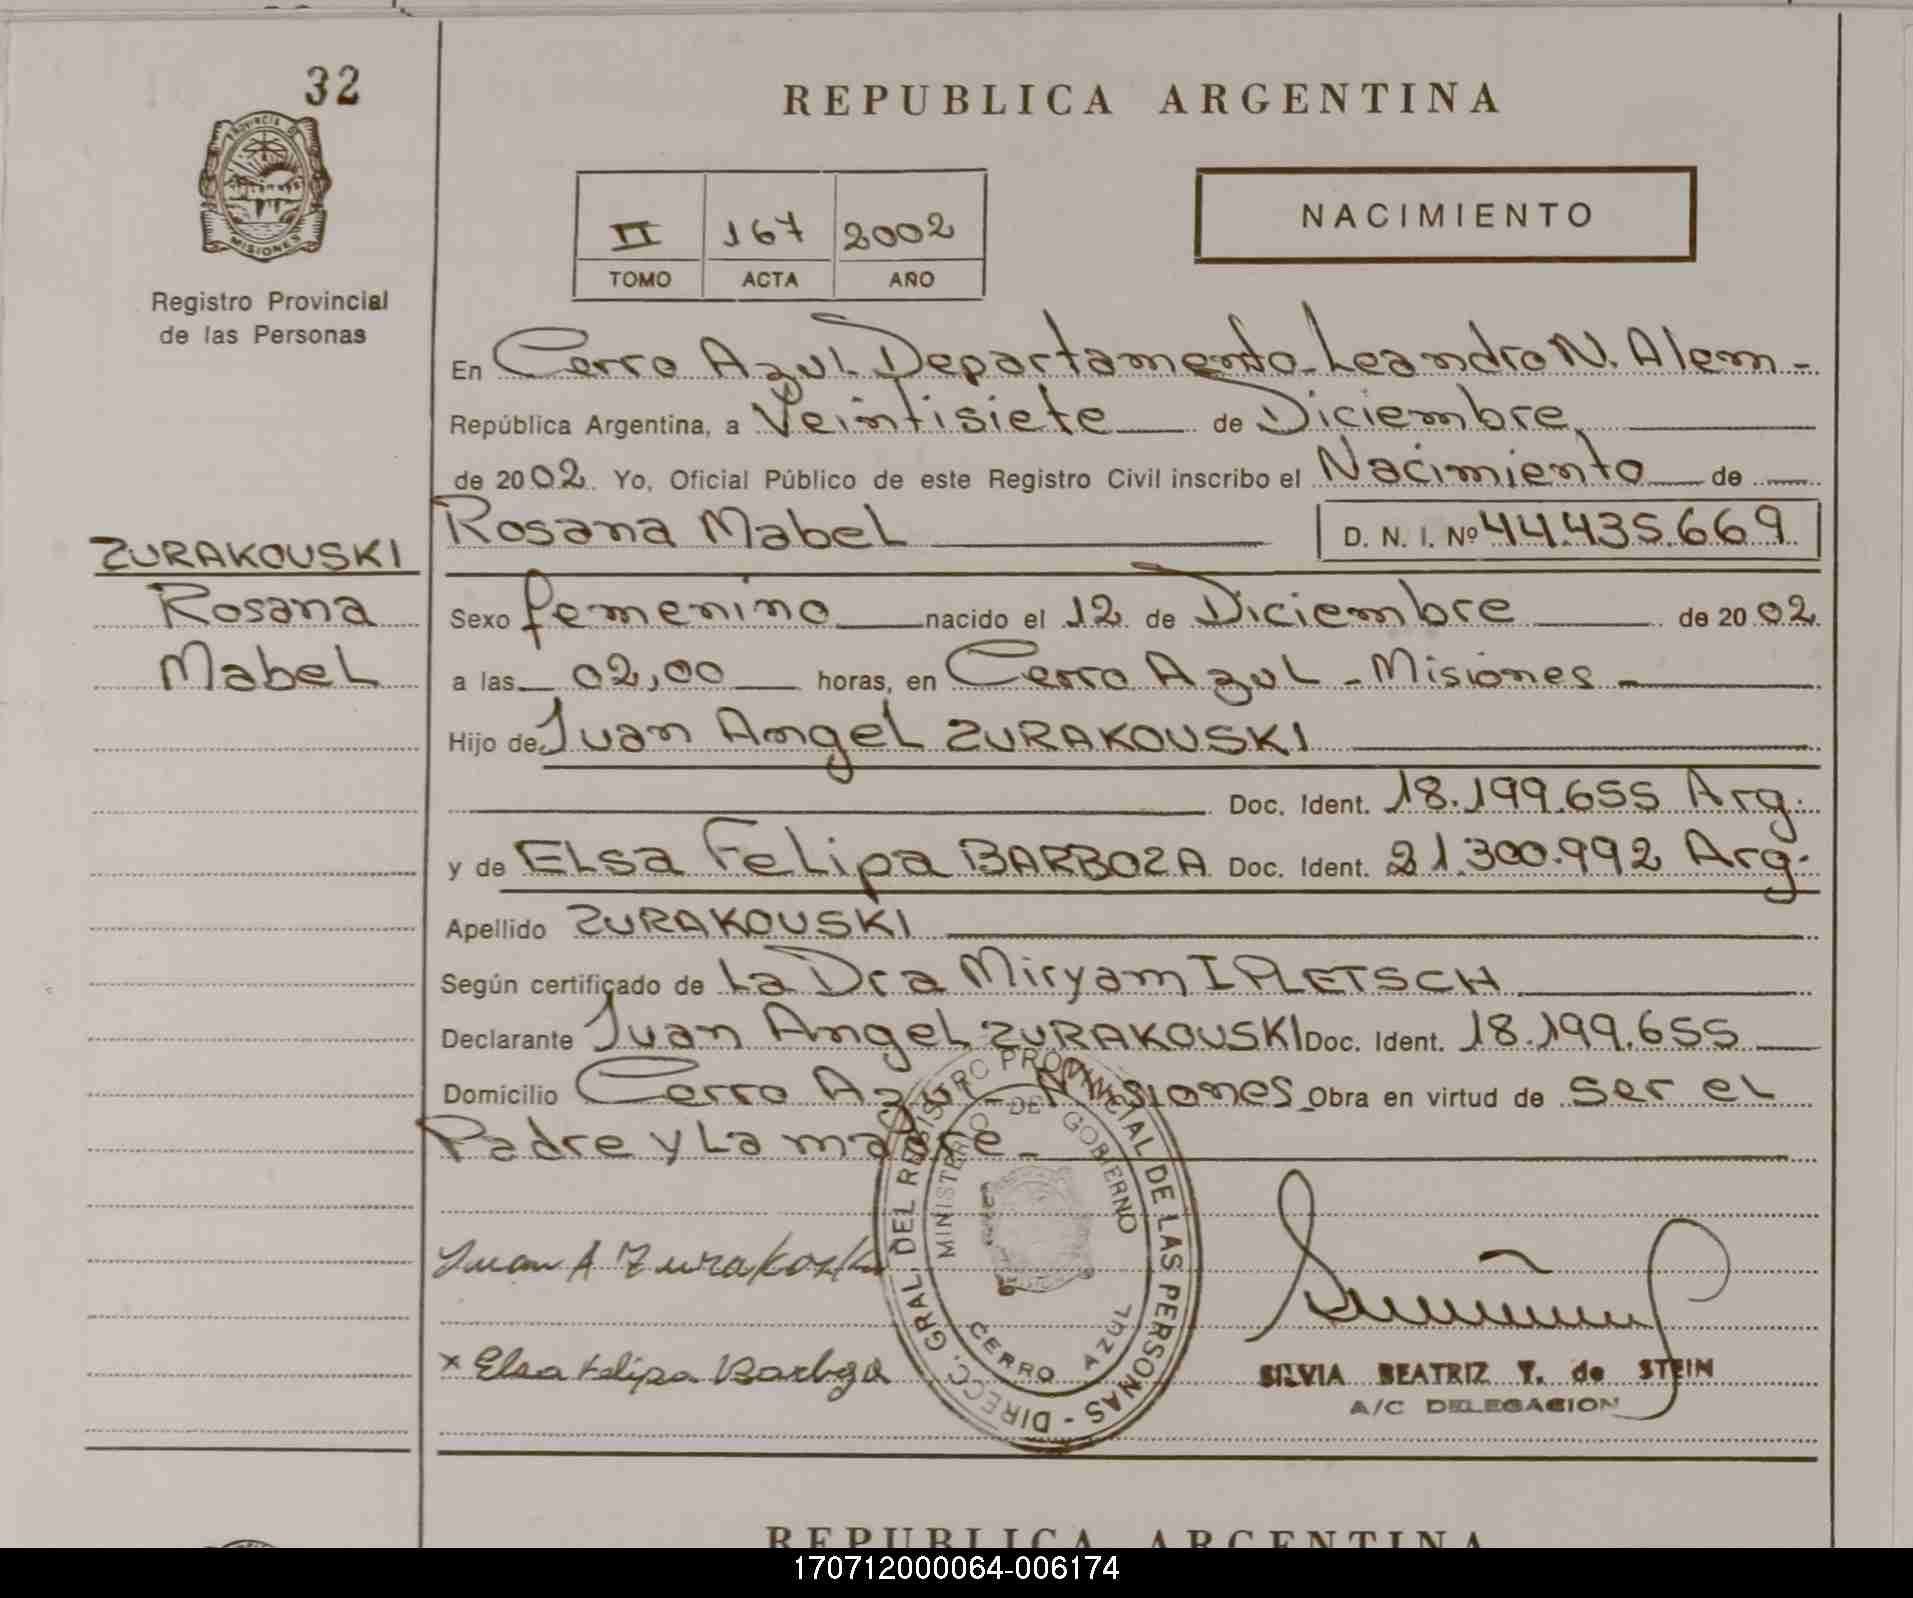 32
PROVINCIA DE
MISIONES
Registro Provincial
de las Personas
ZURAKOUSKI
Rosana
Mabel
REPUBLICA ARGENTINA
II 167 2002
TOMO ACTA AÑO
NACIMIENTO
En Cerro Azul Departamento Leandro N. Alem -
República Argentina, a Veintisiete de Diciembre
de 2002. Yo, Oficial Público de este Registro Civil inscribo el Nacimiento de
Rosana Mabel D. N. I. Nº 44.435.669
Sexo femenino nacido el 12 de Diciembre de 2002
a las 02,00 horas, en Cerro Azul - Misiones -
Hijo de Juan Angel ZURAKOUSKI
Doc. Ident. 18.199.655 Arg.
y de Elsa Felipa BARBOZA Doc. Ident. 21.300.992 Arg.
Apellido ZURAKOUSKI
Según certificado de La Dra Miryam I PLETSCH
Declarante Juan Angel ZURAKOUSKI Doc. Ident. 18.199.655
Domicilio Cerro Azul - Misiones Obra en virtud de ser el
Padre y La madre -
DIRECC. GRAL. DEL REGISTRO PROVINCIAL DE LAS PERSONAS -
MINISTERIO DE GOBIERNO
CERRO AZUL
Juan A Zurakoski
x Elsa Felipa Barboza
SILVIA BEATRIZ T. de STEIN
A/C DELEGACION
REPUBLICA ARGENTINA
170712000064-006174